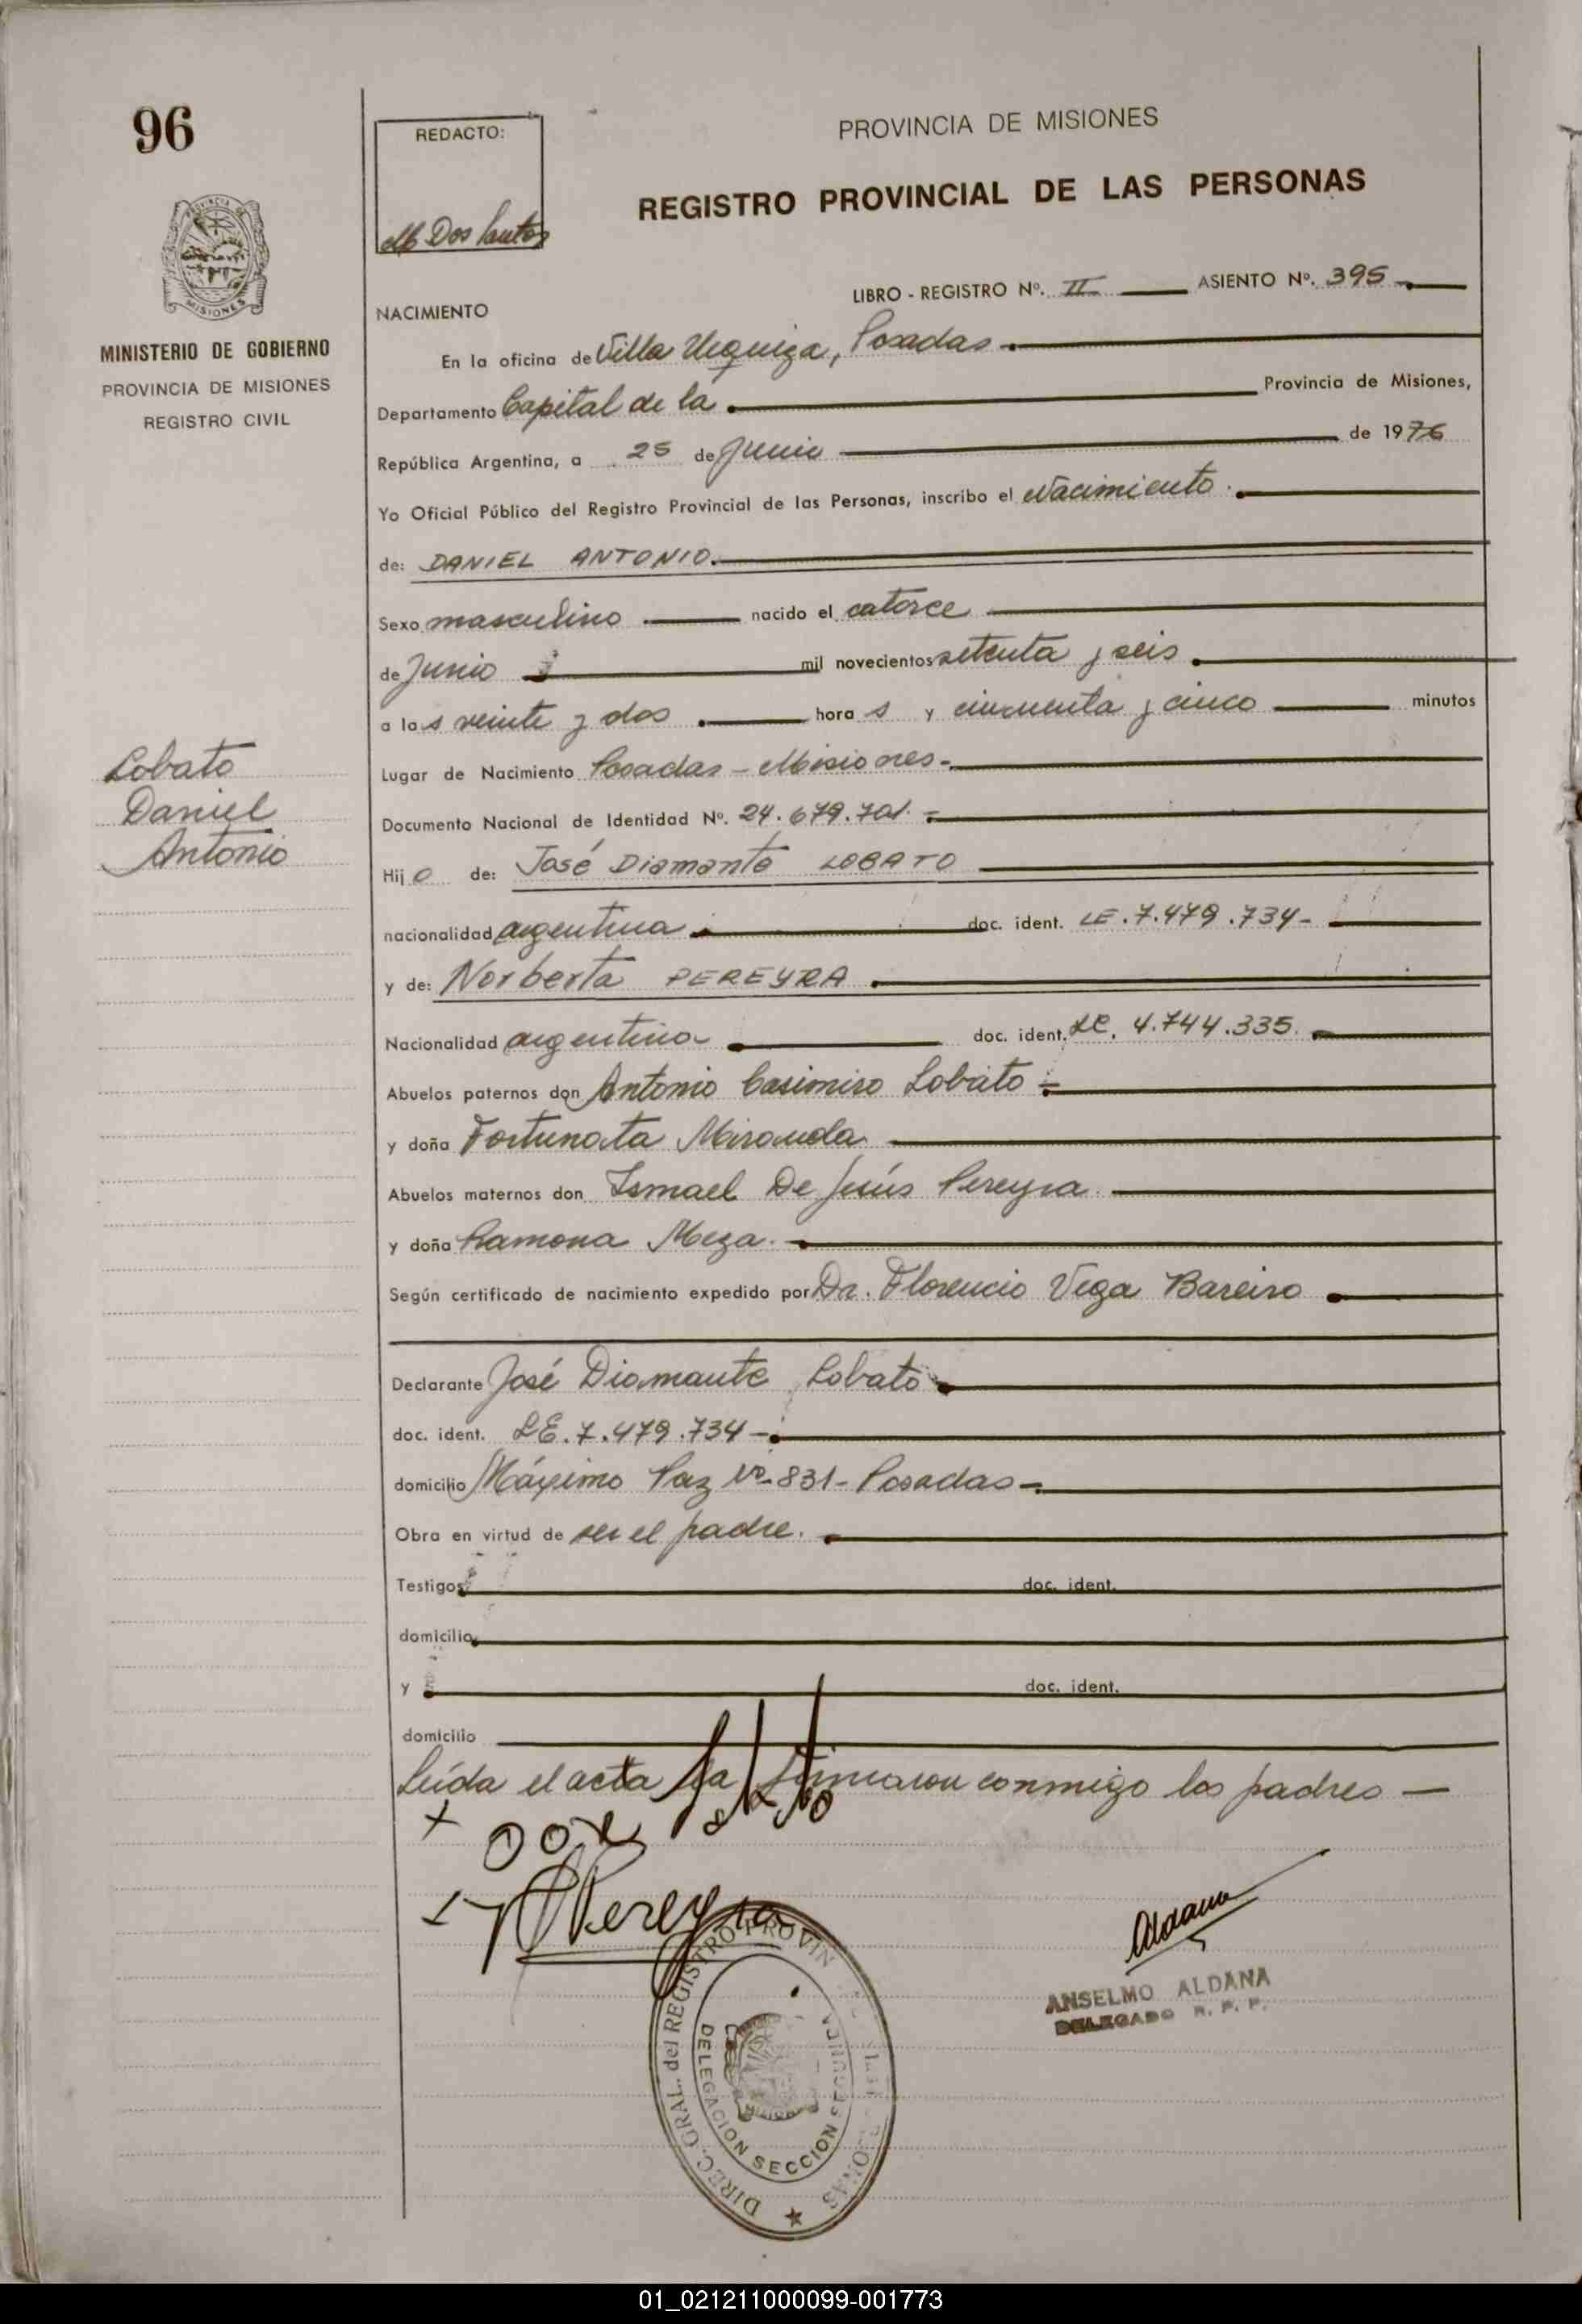 96
REDACTO:
M Dos Santos
PROVINCIA DE MISIONES
REGISTRO PROVINCIAL DE LAS PERSONAS
MISIONES
MINISTERIO DE GOBIERNO
PROVINCIA DE MISIONES
REGISTRO CIVIL
LIBRO - REGISTRO Nº. II ASIENTO Nº. 395
NACIMIENTO
En la oficina de Villa Urquiza, Posadas
Departamento Capital de la Provincia de Misiones,
República Argentina, a 25 de Junio de 1976
Yo Oficial Público del Registro Provincial de las Personas, inscribo el Nacimiento
de: DANIEL ANTONIO
Sexo masculino nacido el catorce
de Junio mil novecientos setenta y seis
a las veinte y dos horas y cincuenta y cinco minutos
Lugar de Nacimiento Posadas - Misiones-
Documento Nacional de Identidad Nº. 24.679.701
Hijo de: José Diamante LOBATO
nacionalidad argentina doc. ident. LE.7.479.734-
y de: Norberta PEREYRA
Nacionalidad argentina doc. ident. LC. 4.744.335
Abuelos paternos don Antonio Casimiro Lobato
y doña Fortunata Miranda
Abuelos maternos don Ismael De Jesús Pereyra
y doña Ramona Meza.
Según certificado de nacimiento expedido por Dr. Florencio Vega Bareiro
Declarante José Diamante Lobato
doc. ident. LE.7.479.734-
domicilio Máximo Paz Nº 831- Posadas-
Obra en virtud de ser el padre.
Testigos doc. ident.
domicilio
y doc. ident.
domicilio
Leída el acta la firmaron conmigo los padres
Lobato
Daniel
Antonio
NPereyra
Aldana
ANSELMO ALDANA
DELEGADO R. P. P.
DIREC. GRAL. del REGISTRO PROVIN
DELEGACION SECCION SEGUNDA
01_021211000099-001773